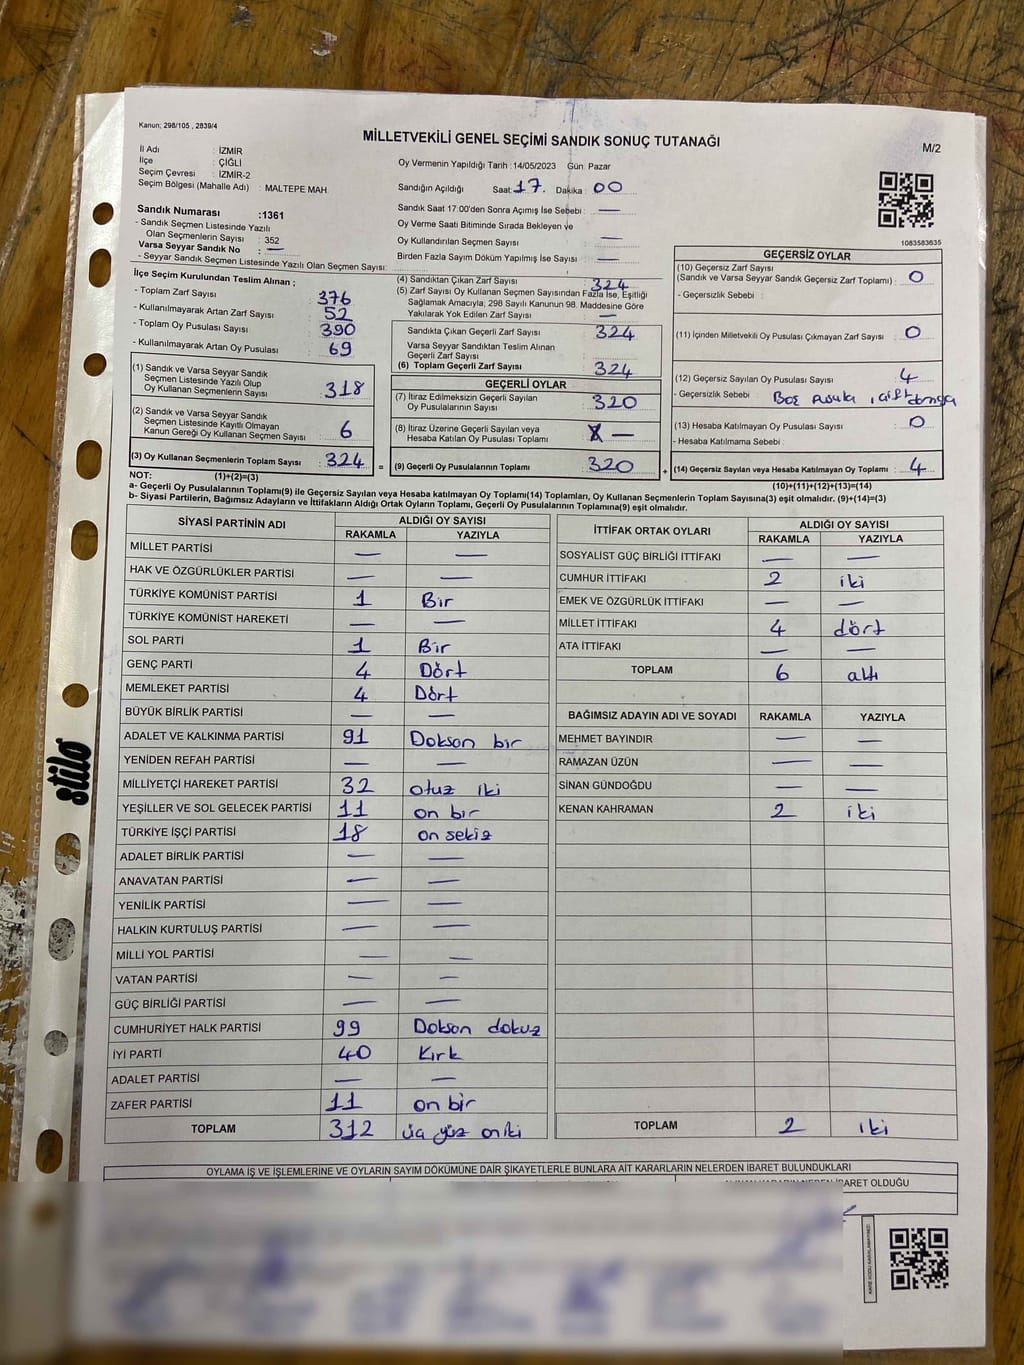 Kanun; 298/105 , 2839/4
MİLLETVEKİLİ GENEL SEÇİMİ SANDIK SONUÇ TUTANAĞI
M/2
İl Adı : İZMİR
İlçe : ÇİĞLİ
Seçim Çevresi : İZMİR-2
Seçim Bölgesi (Mahalle Adı) : MALTEPE MAH.
Oy Vermenin Yapıldığı Tarih :14/05/2023 Gün: Pazar
Sandığın Açıldığı Saat: 17. Dakika : 00
Sandık Saat 17:00'den Sonra Açımış İse Sebebi : —
Oy Verme Saati Bitiminde Sırada Bekleyen ve
Oy Kullandırılan Seçmen Sayısı —
Birden Fazla Sayım Döküm Yapılmış İse Sayısı —
1083583635
Sandık Numarası :1361
- Sandık Seçmen Listesinde Yazılı
Olan Seçmenlerin Sayısı : 352
Varsa Seyyar Sandık No : —
- Seyyar Sandık Seçmen Listesinde Yazılı Olan Seçmen Sayısı:
İlçe Seçim Kurulundan Teslim Alınan ;
- Toplam Zarf Sayısı 376
- Kullanılmayarak Artan Zarf Sayısı 52
- Toplam Oy Pusulası Sayısı 390
- Kullanılmayarak Artan Oy Pusulası 69
(1) Sandık ve Varsa Seyyar Sandık
Seçmen Listesinde Yazılı Olup
Oy Kullanan Seçmenlerin Sayısı 318
(2) Sandık ve Varsa Seyyar Sandık
Seçmen Listesinde Kayıtlı Olmayan
Kanun Gereği Oy Kullanan Seçmen Sayısı 6
(3) Oy Kullanan Seçmenlerin Toplam Sayısı 324 =
(4) Sandıktan Çıkan Zarf Sayısı 324
(5) Zarf Sayısı Oy Kullanan Seçmen Sayısından Fazla İse, Eşitliği
Sağlamak Amacıyla; 298 Sayılı Kanunun 98. Maddesine Göre
Yakılarak Yok Edilen Zarf Sayısı —
Sandıkta Çıkan Geçerli Zarf Sayısı 324
Varsa Seyyar Sandıktan Teslim Alınan
Geçerli Zarf Sayısı
(6) Toplam Geçerli Zarf Sayısı 324
GEÇERLİ OYLAR
(7) İtiraz Edilmeksizin Geçerli Sayılan
Oy Pusulalarının Sayısı 320
(8) İtiraz Üzerine Geçerli Sayılan veya
Hesaba Katılan Oy Pusulası Toplamı —
(9) Geçerli Oy Pusulalarının Toplamı 320 +
GEÇERSİZ OYLAR
(10) Geçersiz Zarf Sayısı
(Sandık ve Varsa Seyyar Sandık Geçersiz Zarf Toplamı) : 0
- Geçersizlik Sebebi :
(11) İçinden Milletvekili Oy Pusulası Çıkmayan Zarf Sayısı 0
(12) Geçersiz Sayılan Oy Pusulası Sayısı 4
- Geçersizlik Sebebi Boş pusula , çift damga
(13) Hesaba Katılmayan Oy Pusulası Sayısı 0
- Hesaba Katılmama Sebebi :
(14) Geçersiz Sayılan veya Hesaba Katılmayan Oy Toplamı 4
NOT: (1)+(2)=(3)
(10)+(11)+(12)+(13)=(14)
a- Geçerli Oy Pusulalarının Toplamı(9) ile Geçersiz Sayılan veya Hesaba katılmayan Oy Toplamı(14) Toplamları, Oy Kullanan Seçmenlerin Toplam Sayısına(3) eşit olmalıdır. (9)+(14)=(3)
b- Siyasi Partilerin, Bağımsız Adayların ve İttifakların Aldığı Ortak Oyların Toplamı, Geçerli Oy Pusulalarının Toplamına(9) eşit olmalıdır.
SİYASİ PARTİNİN ADI ALDIĞI OY SAYISI
RAKAMLA YAZIYLA
MİLLET PARTİSİ — —
HAK VE ÖZGÜRLÜKLER PARTİSİ — —
TÜRKİYE KOMÜNİST PARTİSİ 1 Bir
TÜRKİYE KOMÜNİST HAREKETİ — —
SOL PARTİ 1 Bir
GENÇ PARTİ 4 Dört
MEMLEKET PARTİSİ 4 Dört
BÜYÜK BİRLİK PARTİSİ — —
ADALET VE KALKINMA PARTİSİ 91 Doksan bir
YENİDEN REFAH PARTİSİ — —
MİLLİYETÇİ HAREKET PARTİSİ 32 otuz iki
YEŞİLLER VE SOL GELECEK PARTİSİ 11 on bir
TÜRKİYE İŞÇİ PARTİSİ 18 on sekiz
ADALET BİRLİK PARTİSİ — —
ANAVATAN PARTİSİ — —
YENİLİK PARTİSİ — —
HALKIN KURTULUŞ PARTİSİ — —
MİLLİ YOL PARTİSİ — —
VATAN PARTİSİ — —
GÜÇ BİRLİĞİ PARTİSİ — —
CUMHURİYET HALK PARTİSİ 99 Doksan dokuz
İYİ PARTİ 40 Kırk
ADALET PARTİSİ — —
ZAFER PARTİSİ 11 on bir
TOPLAM 312 üç yüz oniki
İTTİFAK ORTAK OYLARI ALDIĞI OY SAYISI
RAKAMLA YAZIYLA
SOSYALİST GÜÇ BİRLİĞİ İTTİFAKI — —
CUMHUR İTTİFAKI 2 iki
EMEK VE ÖZGÜRLÜK İTTİFAKI — —
MİLLET İTTİFAKI 4 dört
ATA İTTİFAKI — —
TOPLAM 6 altı
BAĞIMSIZ ADAYIN ADI VE SOYADI RAKAMLA YAZIYLA
MEHMET BAYINDIR — —
RAMAZAN ÜZÜN — —
SİNAN GÜNDOĞDU — —
KENAN KAHRAMAN 2 iki
TOPLAM 2 iki
OYLAMA İŞ VE İŞLEMLERİNE VE OYLARIN SAYIM DÖKÜMÜNE DAİR ŞİKAYETLERLE BUNLARA AİT KARARLARIN NELERDEN İBARET BULUNDUKLARI
İBARET OLDUĞU
stilo